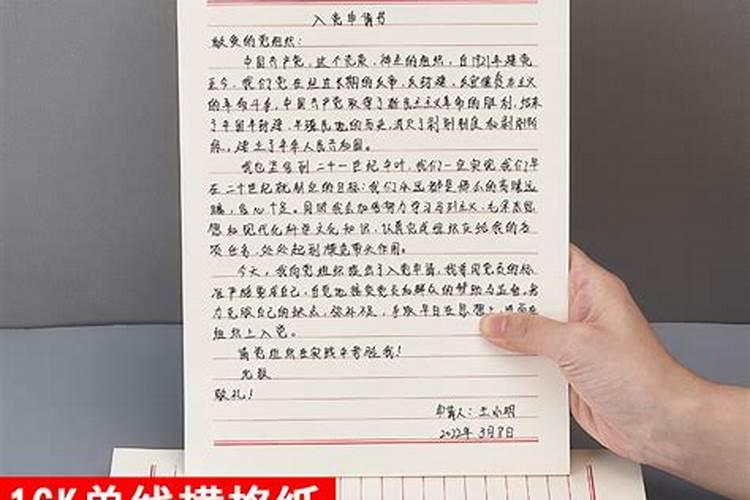 入党申请书
敬爱的党组织：
中国共产党，这个光荣、神圣的组织，自1921年建党
至今，我们党在经过长期的反帝、反封建、反官僚资本主义
的革命斗争，中国共产党取得了新民主主义革命的胜利，结束
了半国半封建、半殖民地的历史，消灭了剥削制度和剥削阶
级，建立了中华人民共和国。
我也坚信到二十一世纪中叶，我们一定实现我们早
在二十世纪就制定的目标；我们永远都是
信心十足。同时我会加倍努力学习马列主义、毛泽东思
想和现代化科学文化知识，认真完成组织交给我的各
项任务，处处起到模范带头作用。
今天，我向党组织提出了入党申请，我要用党员的标
准严格要求自己，自觉地接受党员和群众的帮助与监督，努
力克服自己的缺点，弥补不足，争取早日在思想上，进而在
组织上入党。
请党组织在实践中考验我！
此致
敬礼！
申请人：王小明
2022年 3月8日
16K单线横格纸